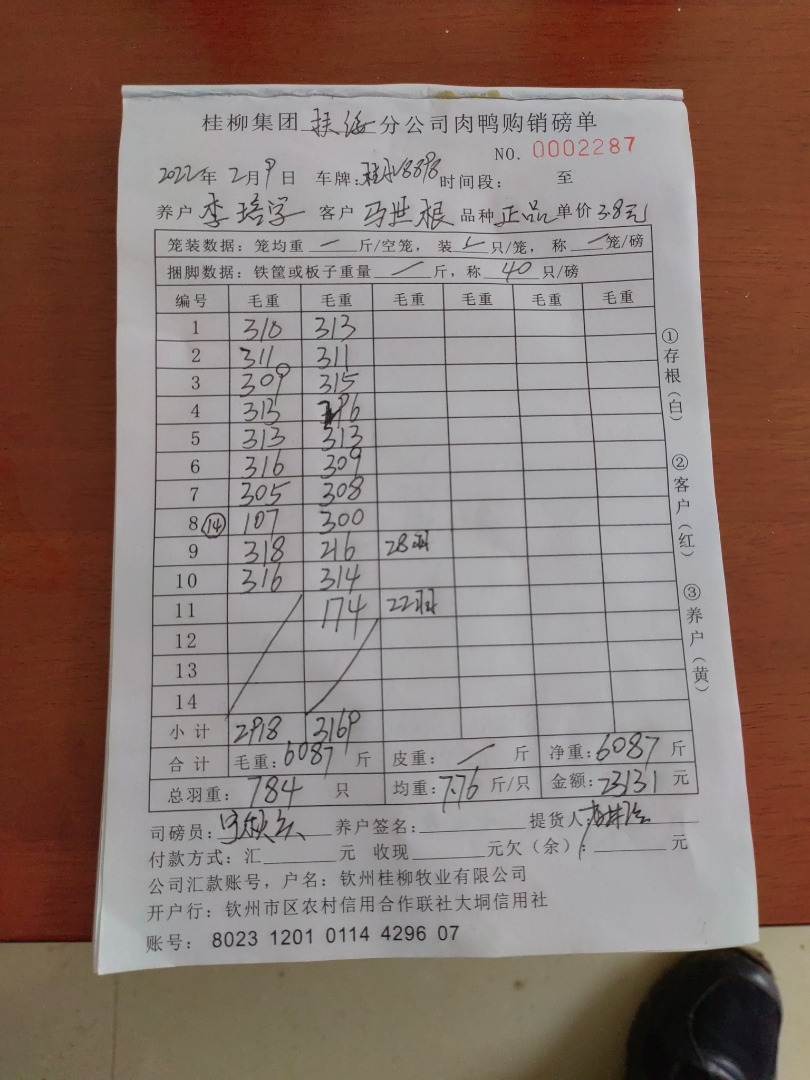 桂柳集团扶绥分公司肉鸭购销磅单
NO. 0002287
2022年2月9日 车牌: 时间段: 至
养户 李培字 客户 马世根 品种 正品 单价 3.8元
笼装数据: 笼均重 / 斤/空笼, 装 / 只/笼, 称 / 笼/磅
捆脚数据: 铁筐或板子重量 / 斤, 称 40 只/磅
编号 毛重 毛重 毛重 毛重 毛重 毛重
1 310 313
2 311 311
3 309 315
4 313 296
5 313 313
6 316 309
7 305 308
8 ⑭ 107 300
9 318 216 28羽
10 316 314
11 174 22羽
12
13
14
小计 2918 3169
合计 毛重: 6087 斤 皮重: / 斤 净重: 6087 斤
总羽重: 784 只 均重: 7.76 斤/只 金额: 23131 元
司磅员: 养户签名: 提货人:
付款方式: 汇 元 收现 元欠(余): 元
公司汇款账号, 户名: 钦州桂柳牧业有限公司
开户行: 钦州市区农村信用合作联社大垌信用社
账号: 8023 1201 0114 4296 07
①存根(白)
②客户(红)
③养户(黄)